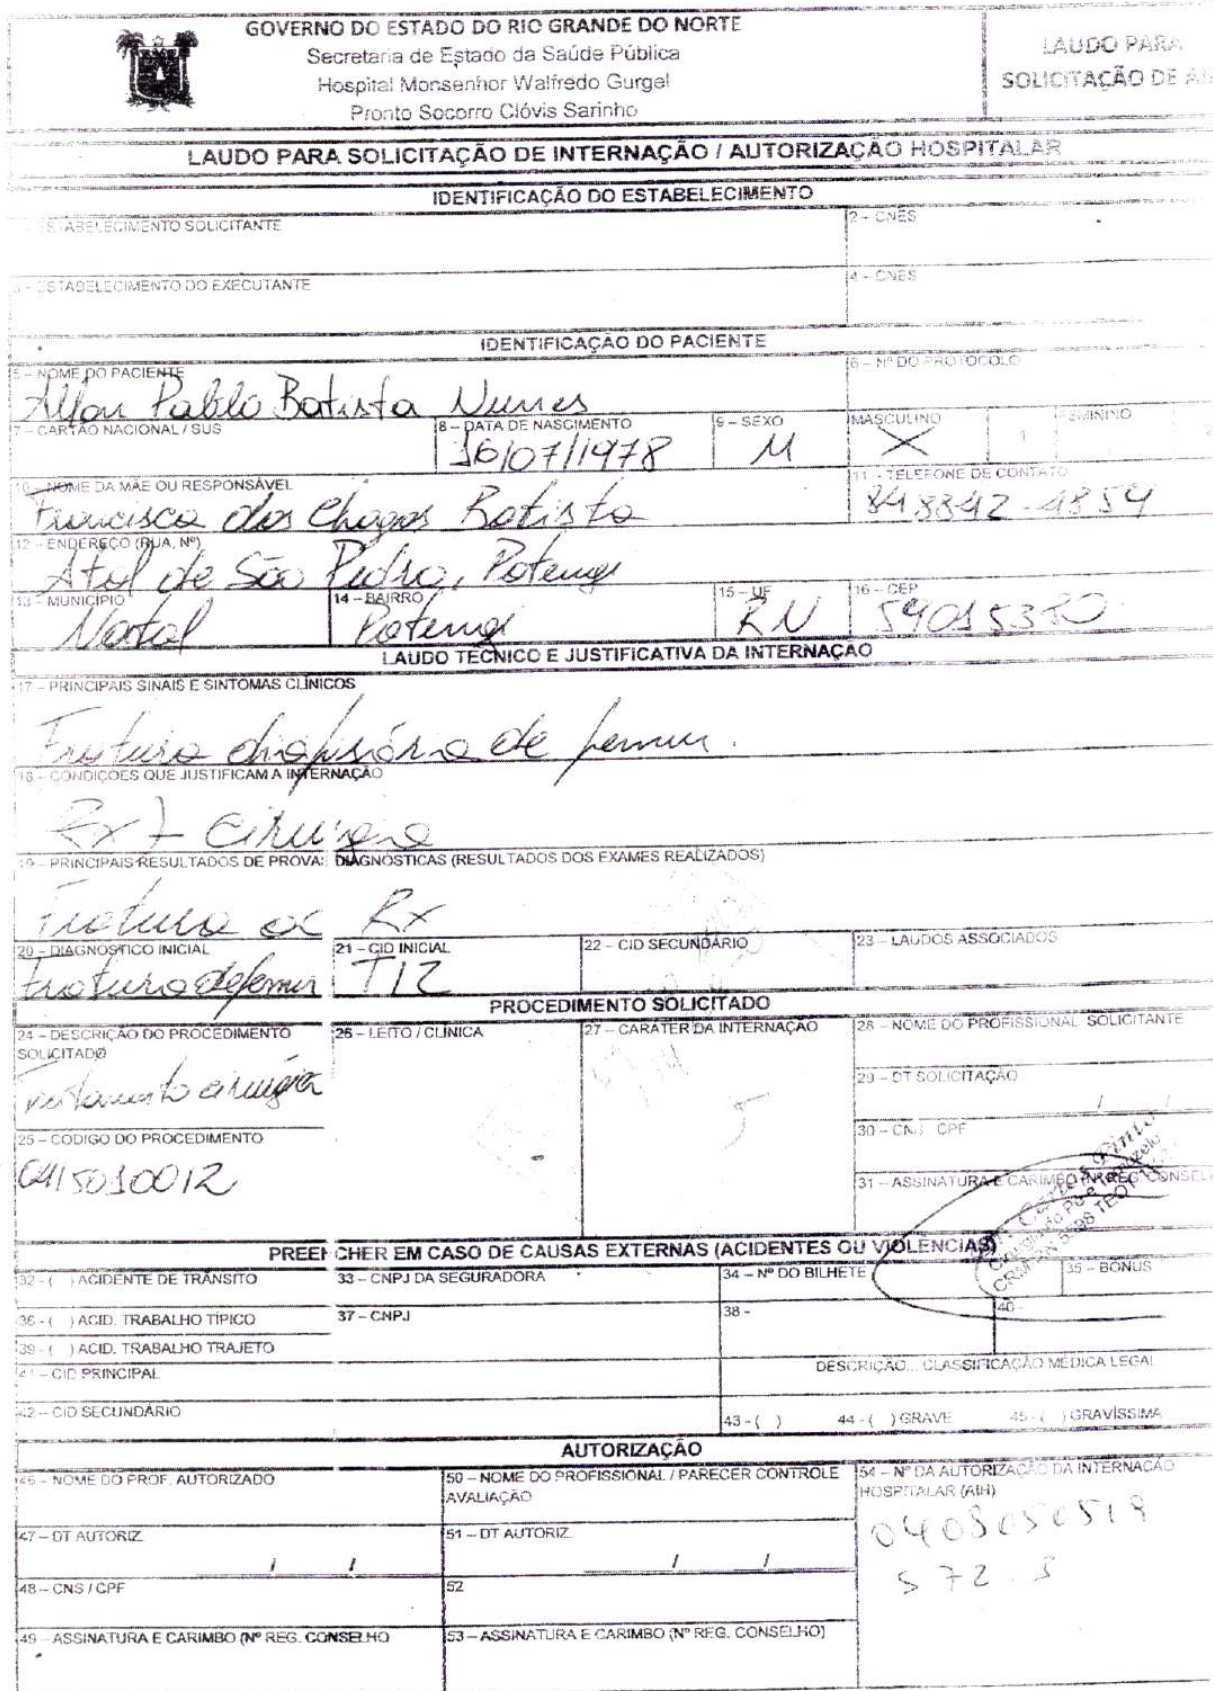 GOVERNO DO ESTADO DO RIO GRANDE DO NORTE
Secretaria de Estado da Saúde Pública
Hospital Monsenhor Walfredo Gurgel
Pronto Socorro Clóvis Sarinho
LAUDO PARA
SOLICITAÇÃO DE
LAUDO PARA SOLICITAÇÃO DE INTERNAÇÃO / AUTORIZAÇÃO HOSPITALAR
IDENTIFICAÇÃO DO ESTABELECIMENTO
ESTABELECIMENTO SOLICITANTE
2 – CNES
– ESTABELECIMENTO DO EXECUTANTE
4 – CNES
IDENTIFICAÇÃO DO PACIENTE
5 – NOME DO PACIENTE
6 – Nº DO PROTOCOLO
Pablo Batista Nunes
7 – CARTÃO NACIONAL / SUS
8 – DATA DE NASCIMENTO
9 – SEXO
MASCULINO
1
FEMININO
2
16/07/1978
M
X
10 – NOME DA MÃE OU RESPONSÁVEL
11 – TELEFONE DE CONTATO
Francisca das Chagas Batista
848842-4854
12 – ENDEREÇO (RUA, Nº)
Atol de São Pedro, Potengi
13 – MUNICÍPIO
14 – BAIRRO
15 – UF
16 – CEP
Natal
Potengi
RN
LAUDO TECNICO E JUSTIFICATIVA DA INTERNAÇÃO
17 – PRINCIPAIS SINAIS E SINTOMAS CLÍNICOS
Fratura diafisária de femur.
18 – CONDIÇÕES QUE JUSTIFICAM A INTERNAÇÃO
Rx + cirurgia
19 – PRINCIPAIS RESULTADOS DE PROVAS DIAGNOSTICAS (RESULTADOS DOS EXAMES REALIZADOS)
Fratura ao Rx
20 – DIAGNOSTICO INICIAL
21 – CID INICIAL
22 – CID SECUNDÁRIO
23 – LAUDOS ASSOCIADOS
Fratura de femur
T12
PROCEDIMENTO SOLICITADO
24 – DESCRIÇÃO DO PROCEDIMENTO
SOLICITADO
26 – LEITO / CLINICA
27 – CARATER DA INTERNAÇÃO
28 – NOME DO PROFISSIONAL SOLICITANTE
29 – DT SOLICITAÇÃO
/ /
25 – CODIGO DO PROCEDIMENTO
30 – CNS CPF
0415010012
31 – ASSINATURA E CARIMBO (Nº REG. CONSELH
Carlos Pinto
PREENCHER EM CASO DE CAUSAS EXTERNAS (ACIDENTES OU VIOLENCIAS)
32 - ( ) ACIDENTE DE TRÂNSITO
33 – CNPJ DA SEGURADORA
34 – Nº DO BILHETE
35 – BONUS
36 - ( ) ACID. TRABALHO TÍPICO
37 – CNPJ
38 -
40 -
39 - ( ) ACID. TRABALHO TRAJETO
41 – CID PRINCIPAL
DESCRIÇÃO... CLASSIFICAÇÃO MÉDICA LEGAL
42 – CID SECUNDÁRIO
43 - ( )
44 - ( ) GRAVE
45 - ( ) GRAVÍSSIMA
AUTORIZAÇÃO
46 – NOME DO PROF. AUTORIZADO
50 – NOME DO PROFISSIONAL / PARECER CONTROLE
AVALIAÇÃO
54 – Nº DA AUTORIZACÃO DA INTERNACÃO
HOSPITALAR (AIH)
47 – DT AUTORIZ.
/ /
51 – DT AUTORIZ.
/ /
572.3
48 – CNS / CPF
52
49 – ASSINATURA E CARIMBO (Nº REG. CONSELHO
53 – ASSINATURA E CARIMBO (Nº REG. CONSELHO)